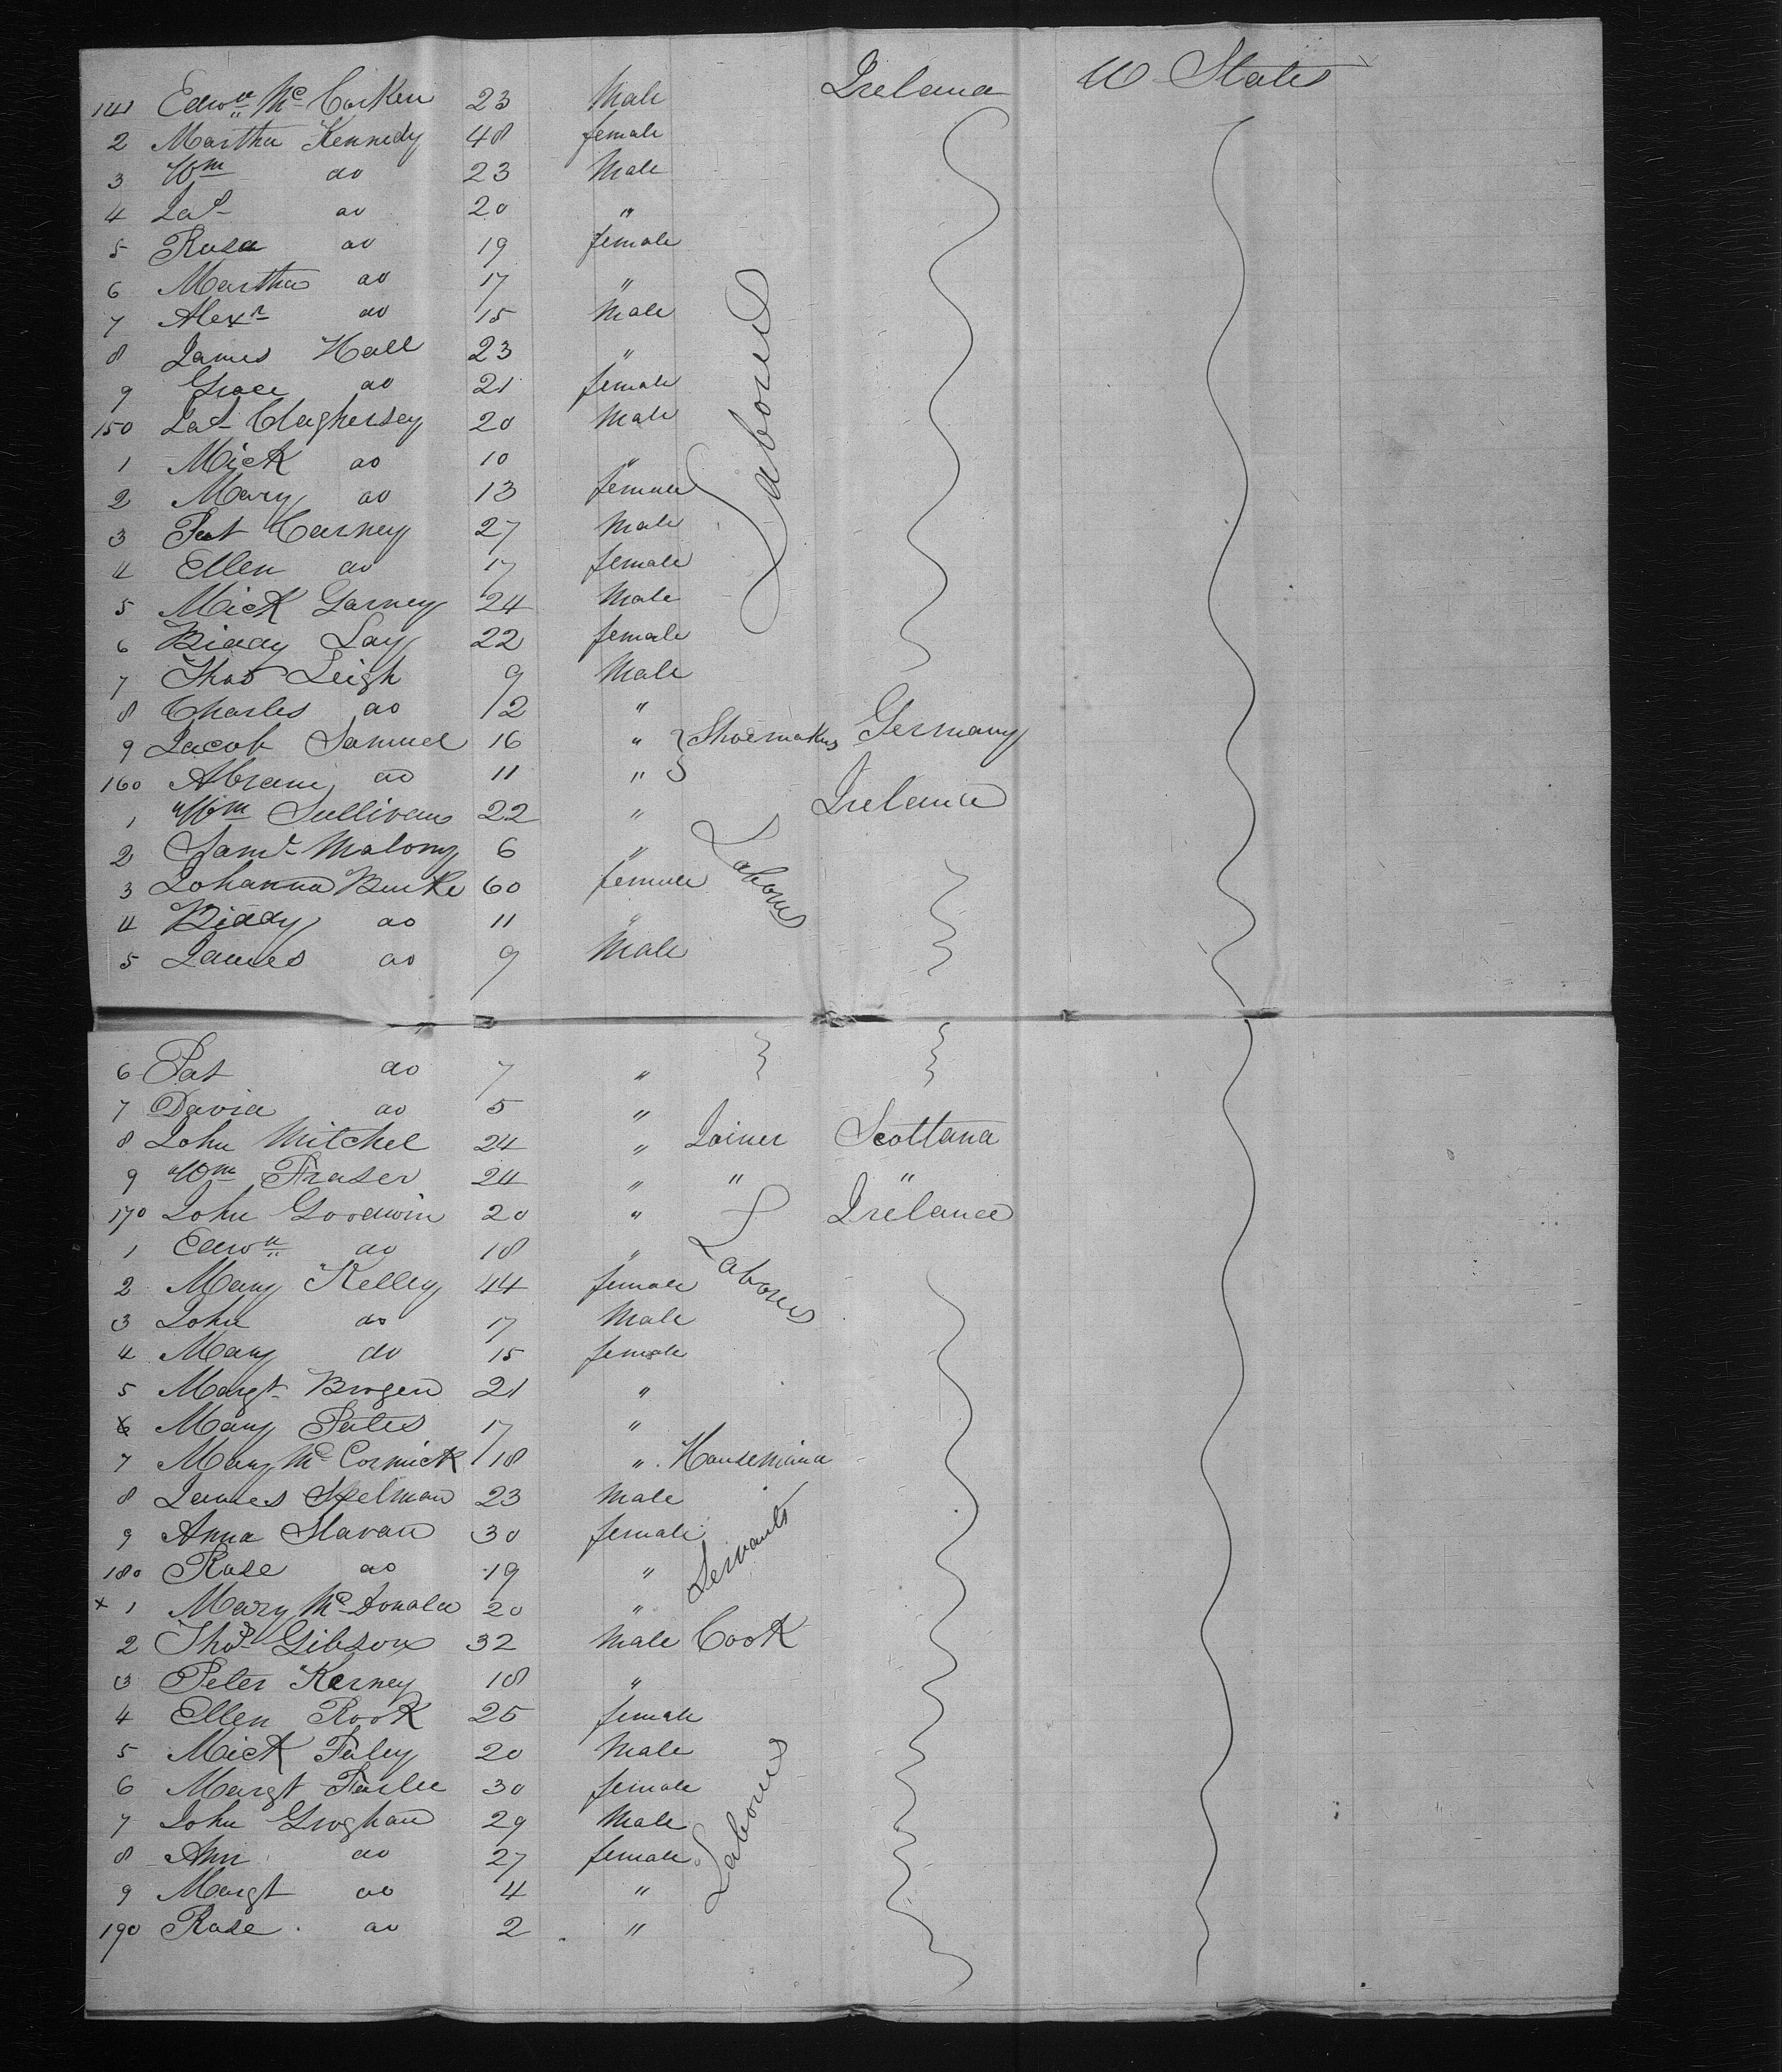 141 Edwd Mc Corken 23 Male Ireland U States
2 Martha Kennedy 48 female
3 Wm do 23 Male
4 Jas do 20 "
5 Rosa do 19 female
6 Martha do 17 "
7 Alexr do 15 Male
8 James Hall 23 "
9 Grace do 21 female
150 Jas Claghersey 20 Male
1 Mick do 10 "
2 Mary do 13 female
3 Pat Carney 27 Male
4 Ellen do 17 female
5 Mick Garney 24 Male
6 Biddy Lay 22 female
Labourers
7 Thos Leigh 9 Male
8 Charles do 12 "
9 Jacob Samuel 16 " Shoemakers Germany
160 Abram do 11 "
1 Wm Sullivan 22 " Ireland
2 Saml Malony 6 "
3 Johanna Burke 60 female
Labourers
4 Biddy do 11 "
5 James do 9 Male
6 Pat do 7 "
7 David do 5 "
8 John Mitchel 24 " Joiner Scotland
9 Wm Fraser 24 " " "
170 John Goodwin 20 " Ireland
1 Edwd do 18 "
2 Mary Kelley 44 female
Labourers
3 John do 17 Male
4 Mary do 15 female
5 Margt Brogen 21 "
6 Mary Pates 17 "
7 Mary Mc Cormick 18 " Housemaid
8 James Spelman 23 Male
9 Anna Slavan 30 female
Servants
180 Rose do 19 "
x 1 Mary Mc Donald 20 "
2 Thos Gibson 32 Male Cook
3 Peter Kerney 18 "
4 Ellen Rook 25 female
5 Mick Faley 20 Male
6 Margt 30 female
7 John Groghan 29 Male
Labourers
8 Ann do 27 female
9 Margt do 4 "
190 Rose do 2 "